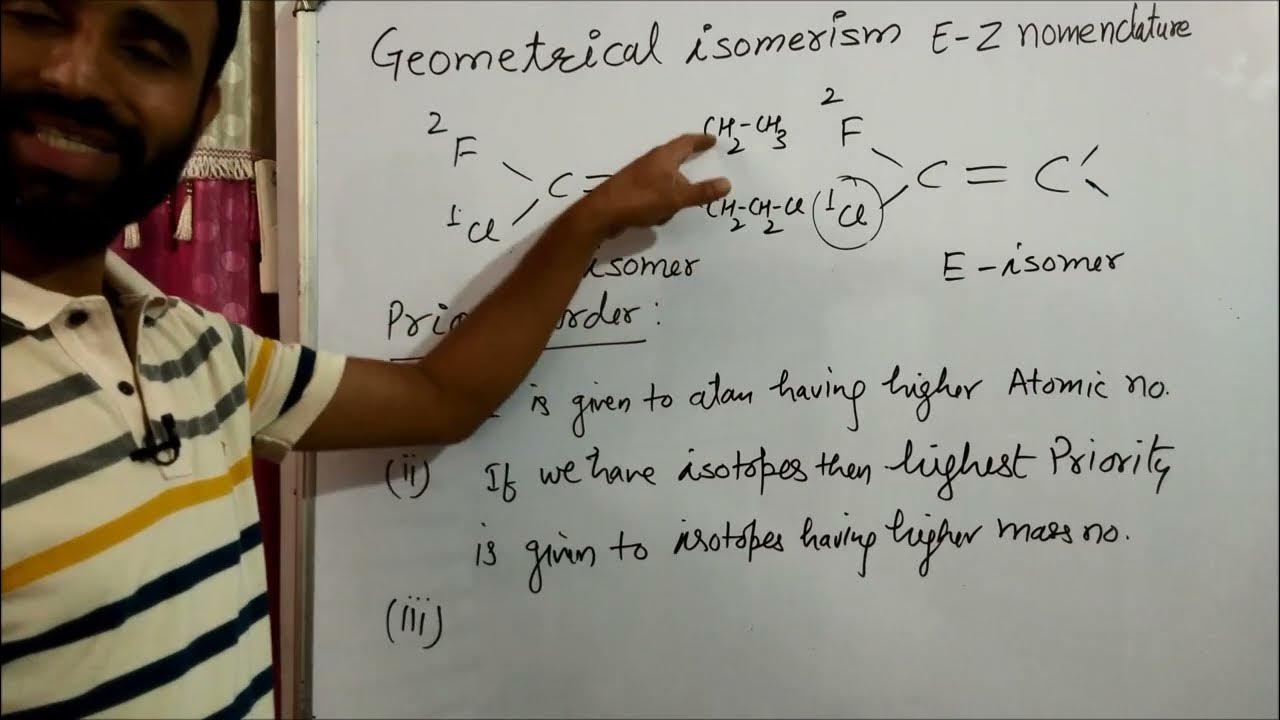 Geometrical isomerism E-Z nomenclature
2 F
1 Cl
C =
CH2-CH3
CH2-CH2-Cl
2 F
1 Cl
C = C
isomer
E-isomer
order :
is given to atom having higher Atomic no.
(ii) If we have isotopes then highest Priority
is given to isotopes having higher mass no.
(iii)